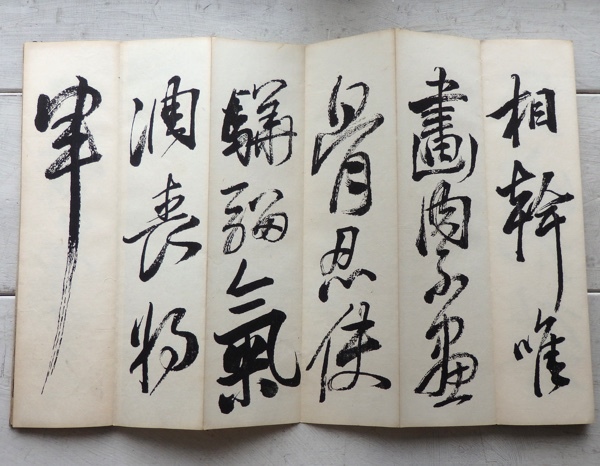 相幹唯
畫肉不畫
骨忍使
驊騮氣
凋喪将
軍